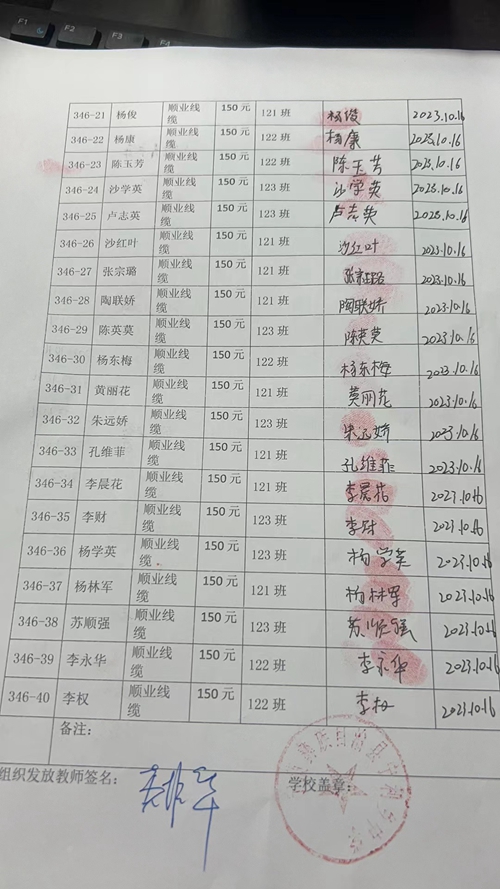 F1 F2 F3 F4
346-21 杨俊 顺业线缆 150元 121班 杨俊 2023.10.16
346-22 杨康 顺业线缆 150元 122班 杨康 2023.10.16
346-23 陈玉芳 顺业线缆 150元 122班 陈玉芳 2023.10.16
346-24 沙学英 顺业线缆 150元 123班 沙学英 2023.10.16
346-25 卢志英 顺业线缆 150元 123班 卢志英 2023.10.16
346-26 沙红叶 顺业线缆 150元 121班 沙红叶 2023.10.16
346-27 张宗璐 顺业线缆 150元 121班 张宗璐 2023.10.16
346-28 陶联娇 顺业线缆 150元 121班 陶联娇 2023.10.16
346-29 陈英莫 顺业线缆 150元 123班 2023.10.16
346-30 杨东梅 顺业线缆 150元 122班 杨东梅 2023.10.16
346-31 黄丽花 顺业线缆 150元 121班 2023.10.16
346-32 朱远娇 顺业线缆 150元 123班 朱远娇 2023.10.16
346-33 孔维菲 顺业线缆 150元 121班 孔维菲 2023.10.16
346-34 李晨花 顺业线缆 150元 121班 李晨花 2023.10.16
346-35 李财 顺业线缆 150元 123班 李财 2023.10.16
346-36 杨学英 顺业线缆 150元 123班 杨学英 2023.10.16
346-37 杨林军 顺业线缆 150元 121班 杨林军 2023.10.16
346-38 苏顺强 顺业线缆 150元 123班 苏顺强 2023.10.16
346-39 李永华 顺业线缆 150元 122班 李永华 2023.10.16
346-40 李权 顺业线缆 150元 122班 李权 2023.10.16
备注：
组织发放教师签名： 学校盖章：